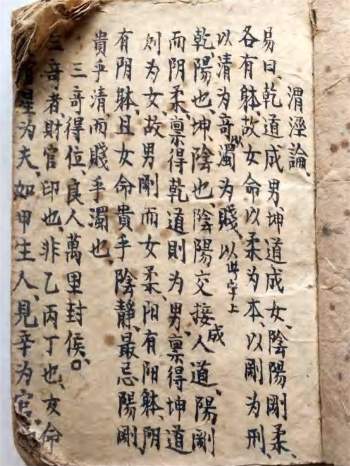 渭涇論、
易曰、乾道成男、坤道成女、陰陽剛柔、
各有躰故女命以柔為本、以剛為刑
以清為奇以濁為賤、以此字上
乾陽也坤陰也、陰陽交接成人道、陽剛
而阴柔、禀得乾道則为男禀得坤道
则为女故男剛而女柔、阳有阳躰、阴
有阴躰、且女命貴乎陰静、最忌陽剛
貴乎清而賤乎濁也、
三奇得位、良人萬里封侯。
三奇者財官印也、非乙丙丁也、女命
星为夫、如甲生人、見辛为官